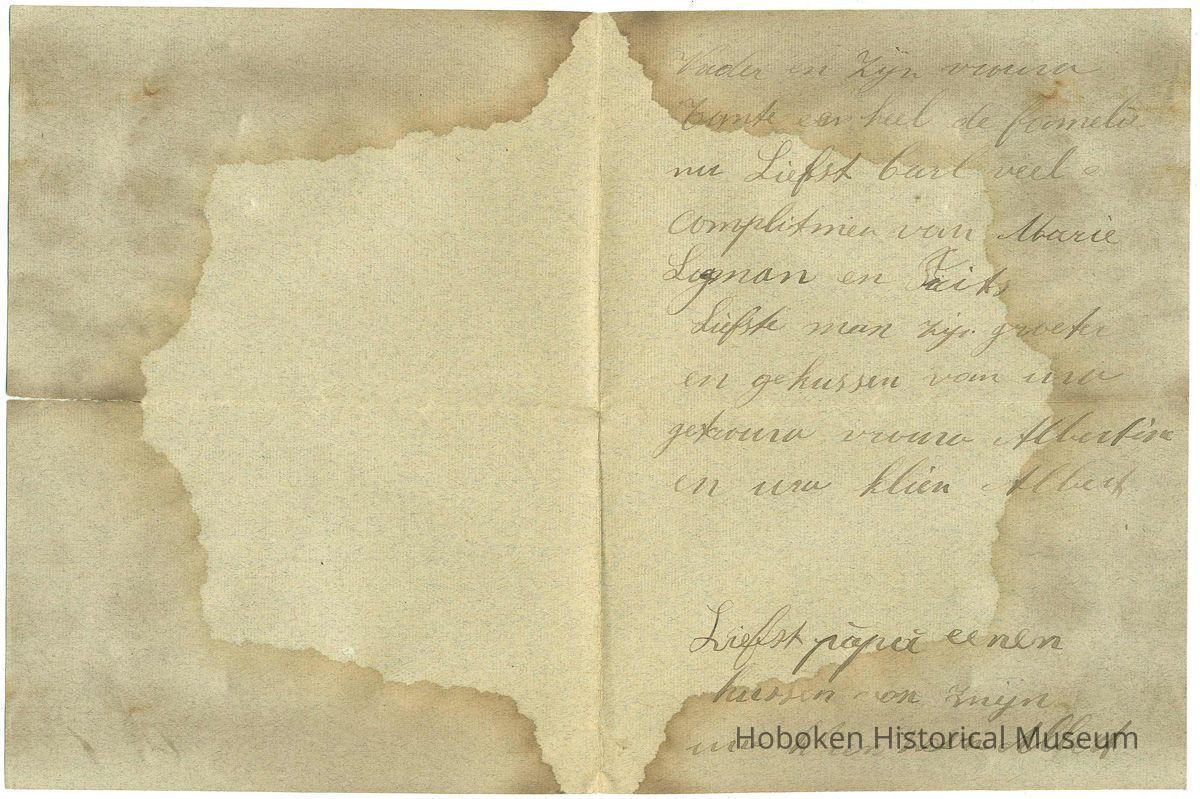 Vader en zijn vrouw
Tante en heel de famelie
nu Liefst Carl veel
complitmen van Marie
Logman en Frits
Liefste man zijn groeten
en gekussen van uw
getrouw vrouw Albertine
en uw klien Albert
Liefst papa eenen
kussen van zuijn
Albert
Hoboken Historical Museum